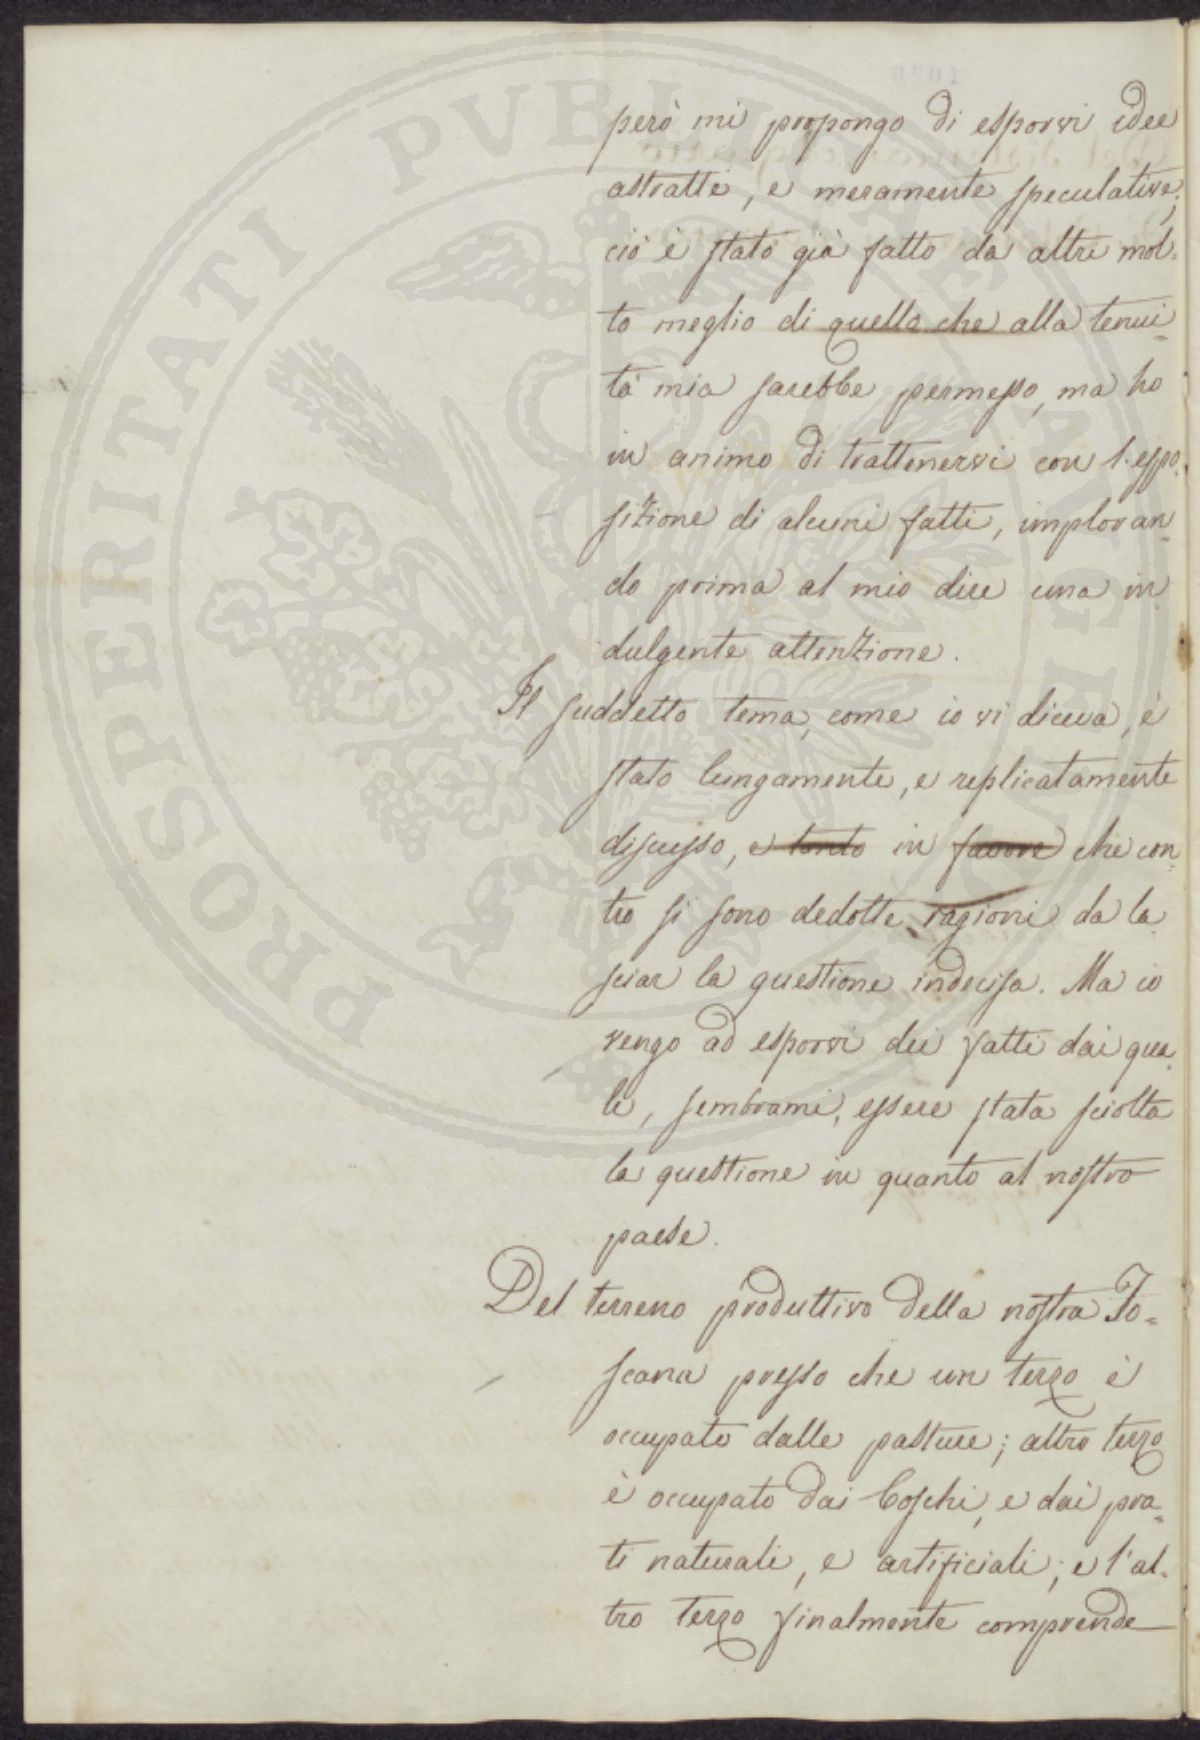 PROSPERITATI PUBLICAE AUGENDAE
però mi propongo di esporvi idee
astratte, e meramente speculative;
ciò è stato già fatto da altri mol-
to meglio di quello che alla tenui-
tà mia sarebbe permesso, ma ho
in animo di trattenervi con l'espo-
sizione di alcuni fatti, imploran-
do prima al mio dire una in
dulgente attenzione.
Il suddetto tema, come io vi diceva, è
stato lungamente, e replicatamente
discusso, e tanto in favore che con-
tro si sono dedotte ragioni da la-
sciar la questione indecisa. Ma io
vengo ad esporvi dei fatti dai qua-
li, sembrami, essere stata sciolta
la questione in quanto al nostro
paese.
Del terreno produttivo della nostra To-
scana presso che un terzo è
occupato dalle pasture; altro terzo
è occupato dai boschi, e dai pra-
ti naturali, e artificiali; e l'al-
tro terzo finalmente comprende